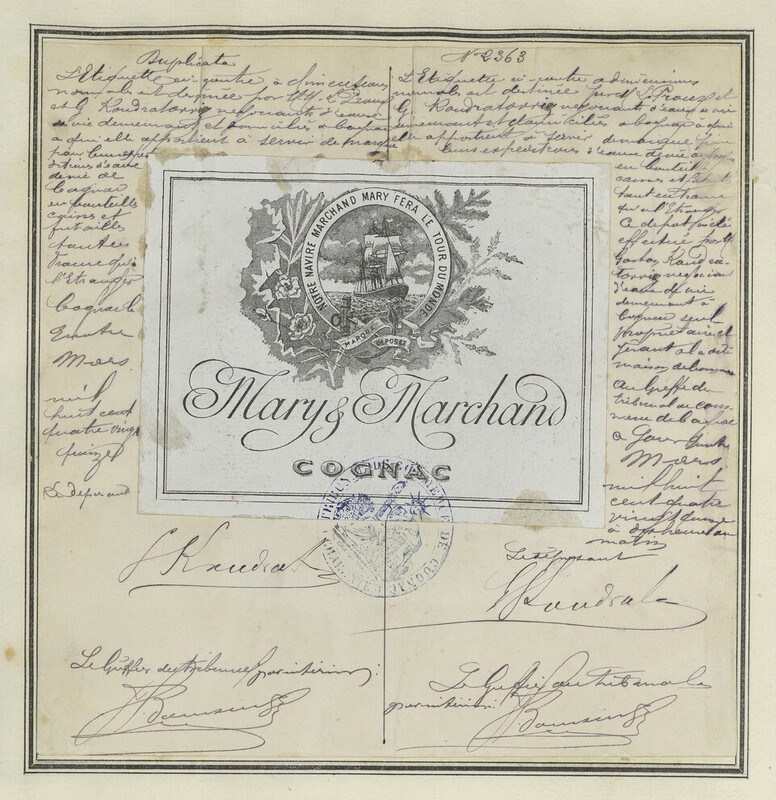 Duplicata
L'Etiquette ci-contre à dimensions
normales est destinée par MM.
et G. Kondratowig négociants d'eaux
de vie demeurant et domiciliés à Cognac
à qui elle appartient à servir de marque
pour leurs
d'eaux
de vie de
Cognac
en bouteilles
caisses et
futailles
tant en
France qu'à
l'Etranger
Cognac le
Quatre
Mars
mil
huit cent
quatre vingt
quinze
Le déposant
G Kondrat
Le Greffier du tribunal par intérim:
N° 2363
L'Etiquette ci-contre à dimensions
normales est destinée par et
G. Kondratowig négociants d'eaux de vie
demeurant et domiciliés à Cognac à qui
elle appartient à servir de marque pour
leurs expéditions d'eaux de vie
en bouteilles
caisses et
tant en France
qu'à l'Etranger
Ce dépôt a été
effectué par M
Gaston Kondra-
towig négociant
d'eaux de vie
demeurant à
Cognac seul
propriétaire et
gérant de la dite
maison de commerce
au Greffe du
tribunal de com-
merce de Cognac
ce jour quatre
Mars
mil huit
cent quatre
vingt quinze
à dix heures du
matin
Le déposant
G Kondrat
Le Greffier du tribunal
par intérim:
NOTRE NAVIRE MARCHAND MARY FERA LE TOUR DU MONDE
MARQUE DÉPOSÉE
Mary & Marchand
COGNAC
TRIBUNAL DE COMMERCE DE COGNAC